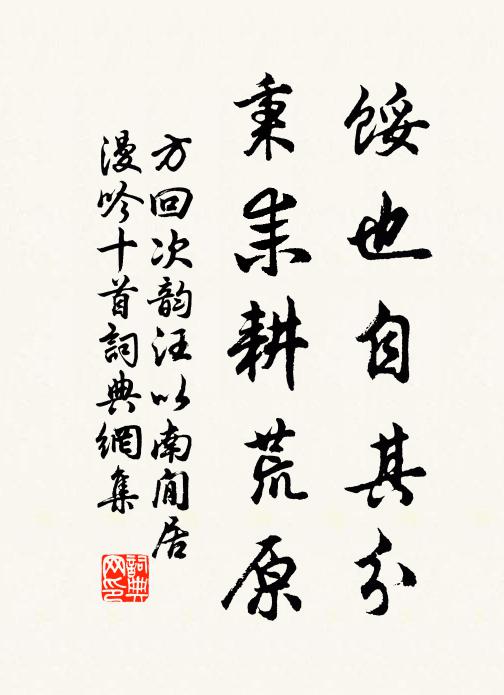 餒也自其分
秉耒耕荒原
方回次韵汪以南閒居
漫吟十首詞典網集
詞典
网印